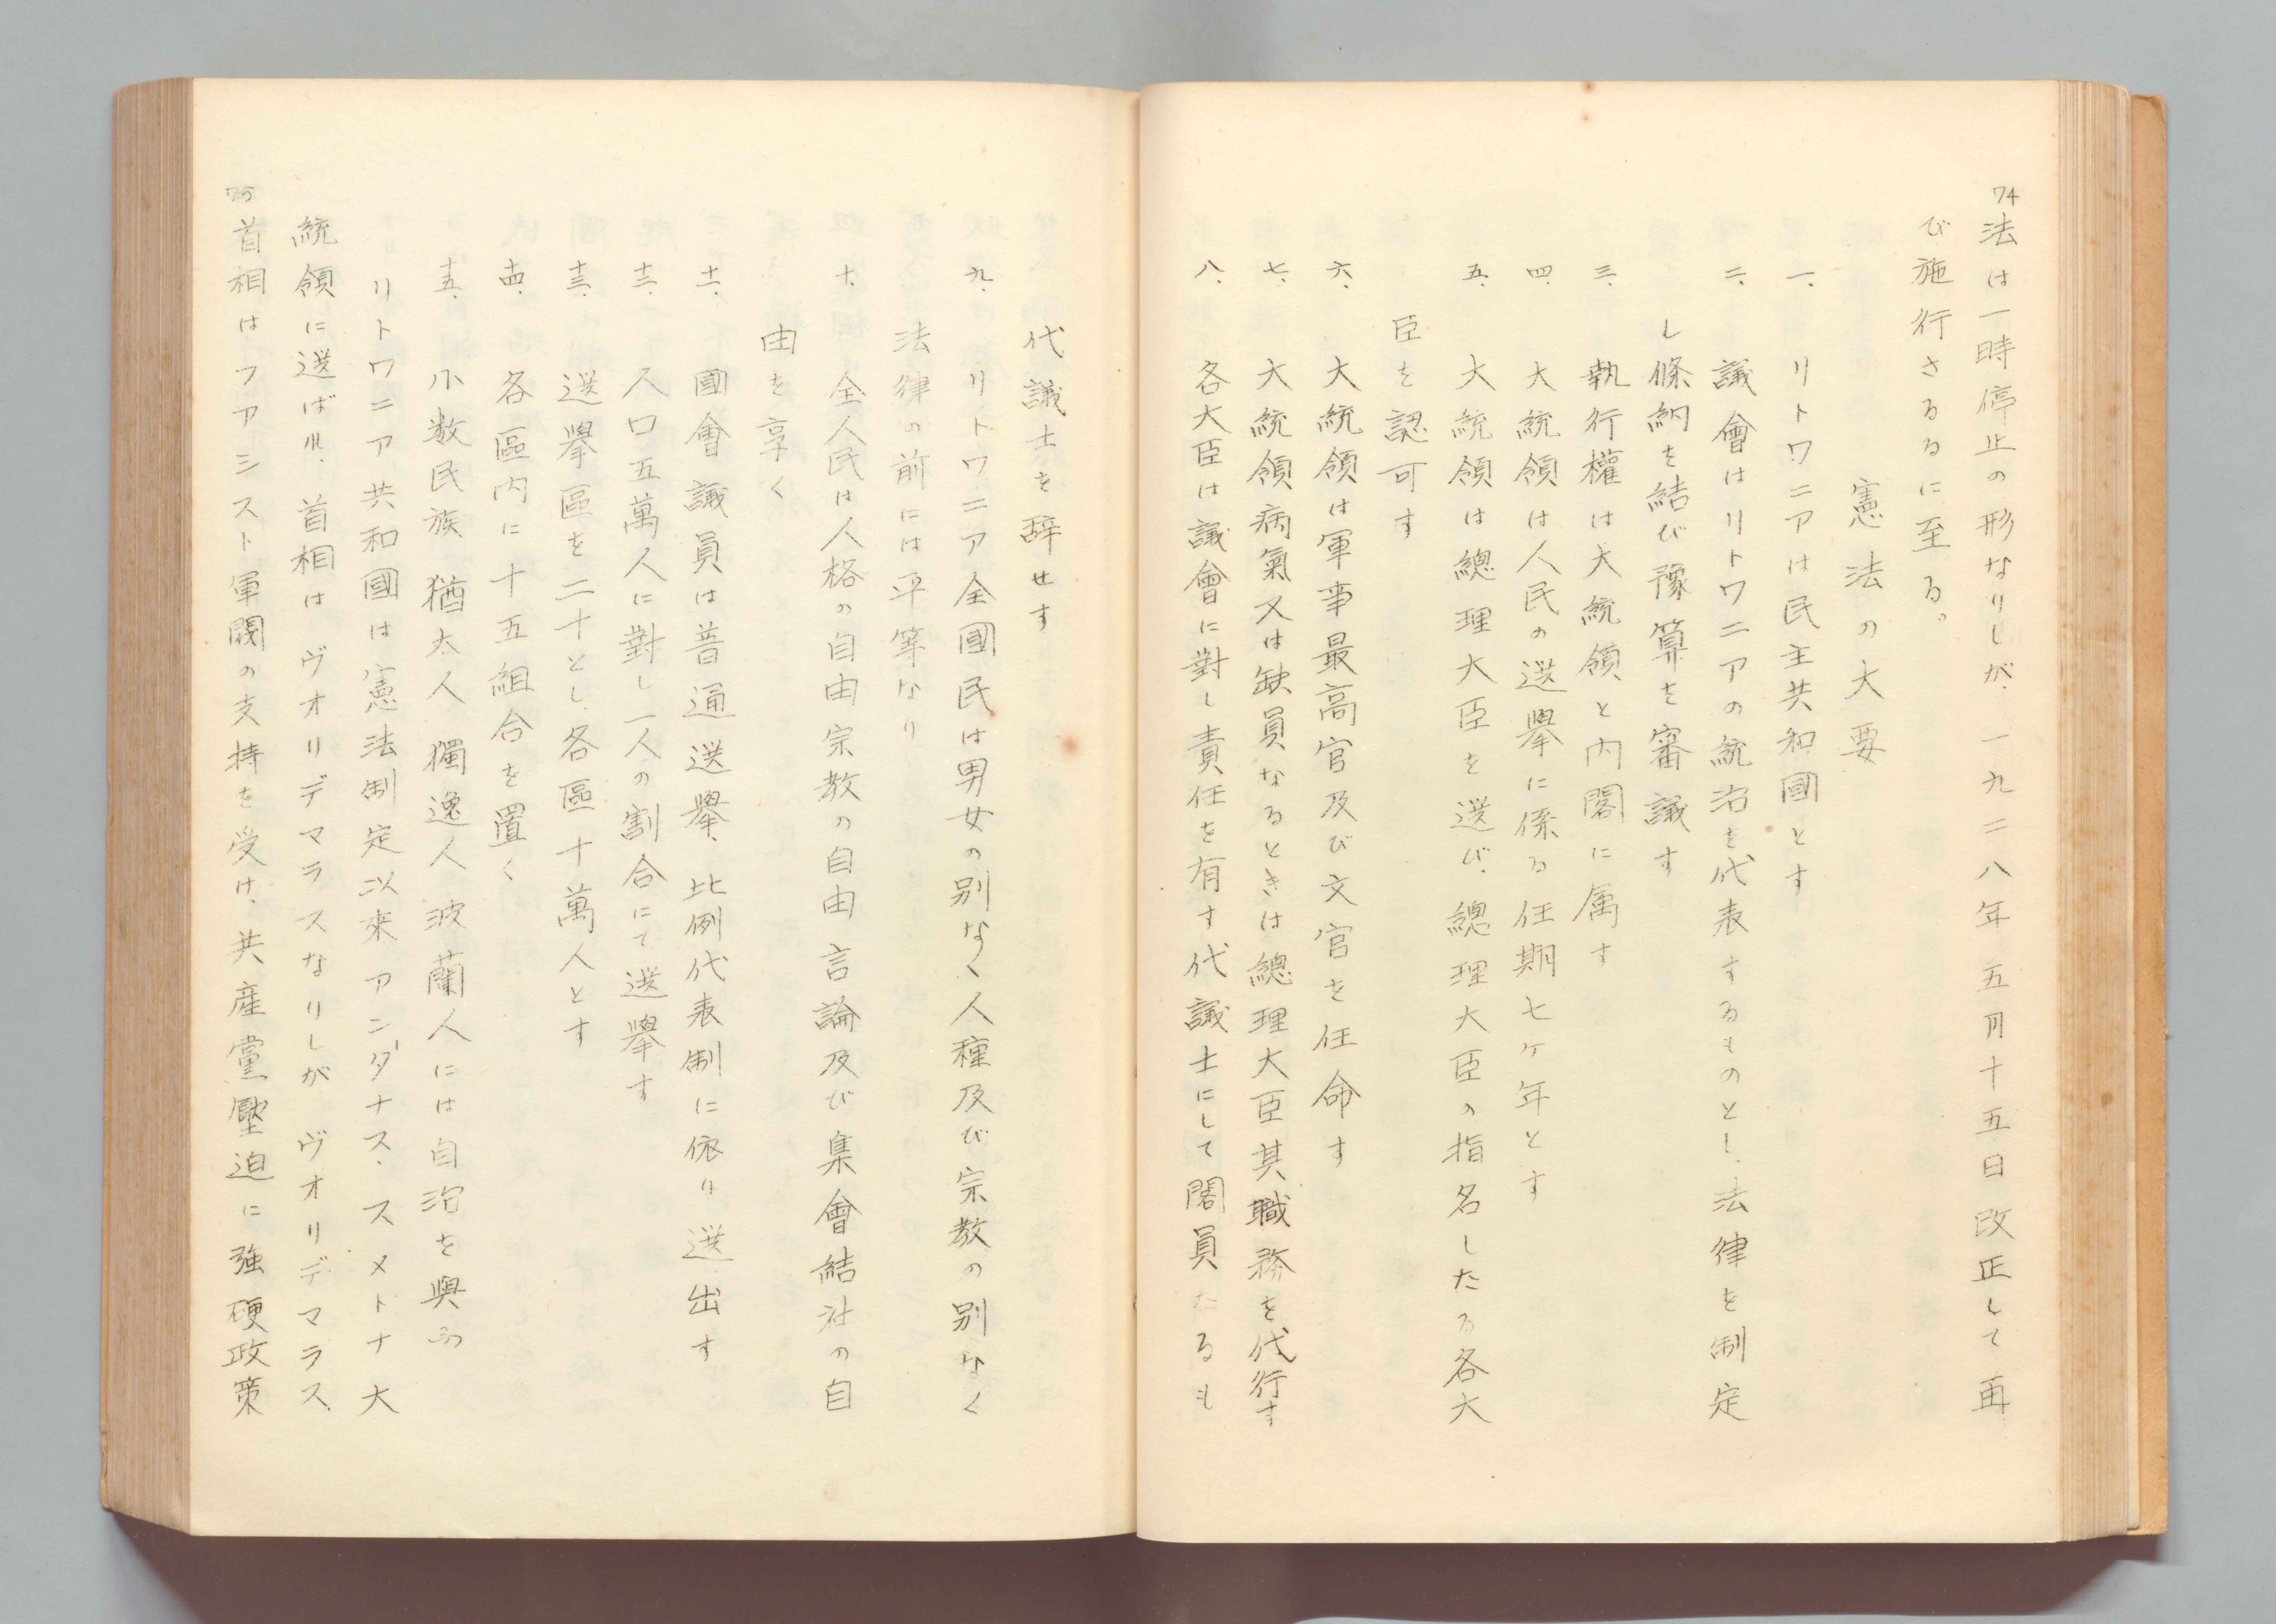 74
法は一時停止の形なりしが、一九二八年五月十五日改正して再
び施行さるるに至る。
憲法の大要
一、リトワニアは民主共和國とす
二、議會はリトワニアの統治を代表するものとし、法律を制定
し條約を結び豫算を審議す
三、執行權は大統領と内閣に属す
四、大統領は人民の選擧に係る任期七ヶ年とす
五、大統領は總理大臣を選び、總理大臣の指名したる各大
臣を認可す
六、大統領は軍事最高官及び文官を任命す
七、大統領病氣又は缺員なるときは總理大臣其職務を代行す
八、各大臣は議會に對し責任を有す代議士にして閣員たるも
代議士を辞せす
九、リトワニア全國民は男女の別なく、人種及び宗教の別なく
法律の前には平等なり
十、全人民は人格の自由宗教の自由言論及び集會結社の自
由を享く
十一、國會議員は普通選擧、比例代表制に依り選出す
十二、人口五萬人に對し一人の割合にて選擧す
十三、選擧區を二十とし各區十萬人とす
十四、各區内に十五組合を置く
十五、小数民族 猶太人 獨逸人 波蘭人には自治を與ふ
リトワニア共和國は憲法制定以來アンダナス、スメトナ大
統領に選ばれ、首相はヴオリデマラスなりしがヴオリデマラス
75
首相はフアシスト軍閥の支持を受け、共産黨壓迫に強硬政策